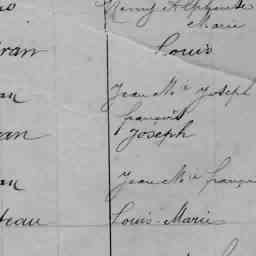 Rémy Alphonse
Marie
ran Louis
an Jean M.ie Joseph
françois
an Joseph
an Jean M.ie françois
teau Louis-Marie